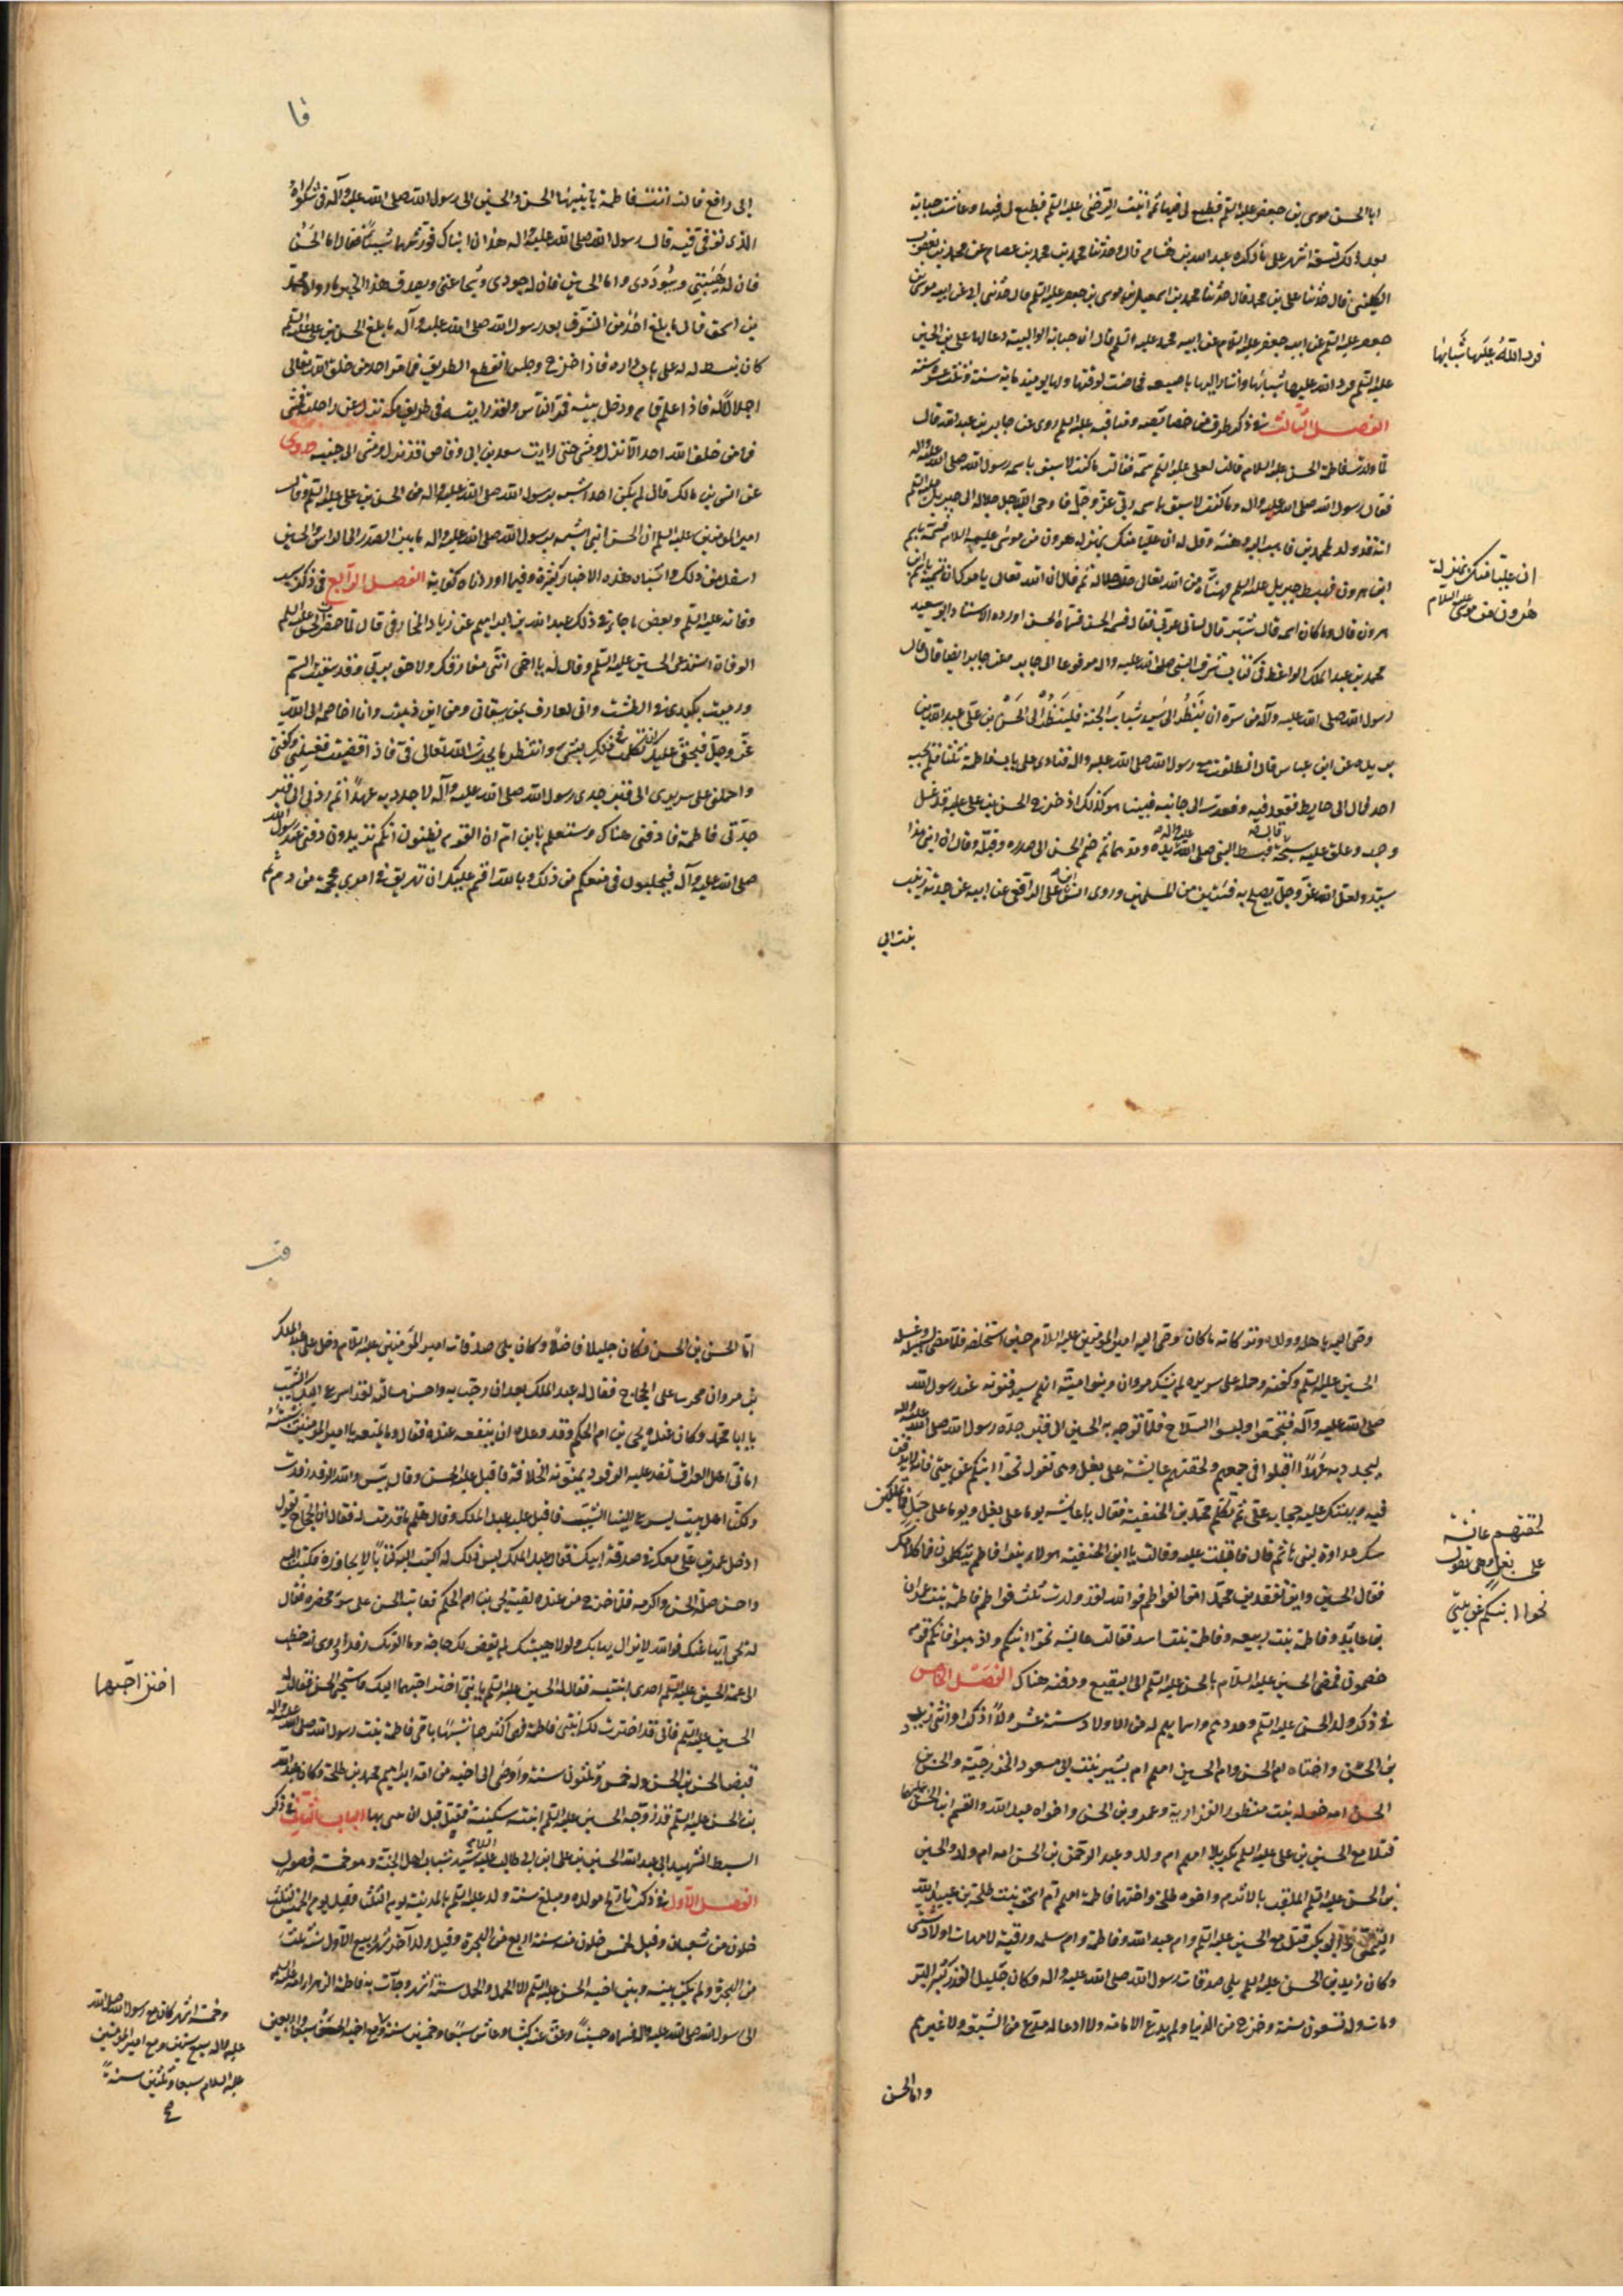 ابا الحسن موسى بن جعفر عليه السلم فطبع لي فيها ثم اتيت الرضى عليه السلم فطبع لي فيها وعاشت حبابة
بعد ذلك تسعة اشهر على ما ذكره عبد الله بن هشام قال وحدثنا محمد بن محمد بن عصام عن محمد بن يعقوب
الكليني قال حدثنا علي بن محمد قال حدثنا محمد بن اسمعيل بن موسى بن جعفر عليه السلم قال حدثني ابي عن ابيه موسى بن
جعفر عليه السلم عن ابيه جعفر عليه السلام عن ابيه محمد عليه السلم قال ان حبابة الوالبية دعا لها علي بن الحسين
عليه السلم فرد الله عليها شبابها واشار اليها باصبعه فحاضت لوقتها ولها يومئذ ماية سنة وثلث عشرة سنة
الفصل الثالث في ذكر طرف من خصائصه ومناقبه عليه السلم روى عن جابر بن عبد الله قال
لما ولدت فاطمة الحسن عليه السلام قالت لعلي عليه السلم سمه فقالت ما كنت لاسبق باسمه رسول الله صلى الله عليه واله
فقال رسول الله صلى الله عليه واله وما كنت لاسبق باسمه ربي عز وجل فاوحى الله جل جلاله الى جبريل عليه السلم
انه قد ولد لمحمد بن فاهبط اليه وهنئه وقل له ان عليا منك بمنزلة هرون من موسى عليه السلام فسمه باسم
ابن هرون فهبط جبريل عليه السلم فهنئاه من الله تعالى جل جلاله ثم قال ان الله تعالى يامرك ان تسميه باسم ابن
هرون قال وما كان اسمه قال شبر قال لساني عربي فقال فسمه الحسن فسماه الحسن اورده الاستاد ابو سعيد
محمد بن عبد الملك الواعظ في كتاب شرف النبي صلى الله عليه واله مرفوعا الى جابر معن جابر ايضا قال قال
رسول الله صلى الله عليه وآله من سره ان ينظر الى سيد شباب الجنة فلينظر الى الحسن بن علي عبد الله بن
بريدة عن ابن عباس قال انطلقت مع رسول الله صلى الله عليه واله فنادى على باب فاطمة ثلثا فلم يجبه
احد فمال الى حايط فقعد فيه وقعدت الى جانبه فبينا هو كذلك اذ خرج الحسن بن علي عليه قد غسل
وجهه وعلق عليه سبحة قال فبسط النبي صلى الله عليه واله يده ومدهما ثم ضم الحسن الى صدره وقبله وقال ان ابني هذا
سيد ولعل الله عز وجل يصلح به فئتين من المسلمين وروى ابراهيم بن علي الرافعي عن ابيه عن جدته زينب
بنت ابي
فرد الله عليها شبابها
ان عليا منك بمنزلة
هارون من موسى عليه السلام
فا
ابي رافع قالت اتت فاطمة بابنيها الحسن والحسين الى رسول الله صلى الله عليه وآله في شكواه
الذي توفى فيه قالت يا رسول الله صلى الله عليه واله هذان ابناك فورثهما شيئا فقال اما الحسن
فان له هيبتي وسؤددى واما الحسين فان له جودى وشجاعتي ويصدق هذا الخبر ما رواه محمد
بن اسحق قال ما بلغ احد من الشرف بعد رسول الله صلى الله عليه وآله ما بلغ الحسن بن علي عليه السلم
كان يبسط له على باب داره فاذا خرج وجلس انقطع الطريق فما مر احد من خلق الله تعالى
اجلالا له فاذا علم قام ودخل بيته فمر الناس ولقد رايته في طريق مكة نزل عن راحلته فمشى
فما من خلق الله احد الا نزل ومشى حتى رايت سعد بن ابي وقاص قد نزل ومشى الى جنبه وروى
عن انس بن مالك قال لم يكن احد اشبه برسول الله صلى الله عليه واله من الحسن بن علي عليه السلم وقال
امير المومنين عليه السلم ان الحسن ابني اشبه برسول الله صلى الله عليه واله ما بين الصدر الى الراس والحسين
اسفل من ذلك واشباه هذه الاخبار كثيرة وفيما اوردناه كفاية الفصل الرابع في ذكر سبب
وفاته عليه السلم وبعض ما جاء في ذلك عبد الله بن ابراهيم عن زياد المخارقي قال لما حضرت الحسن عليه السلم
الوفاة استدعى الحسين عليه السلم وقال له يا اخي انني مفارقك ولاحق بربي وقد سقيت السم
ورميت بكبدي في الطشت واني لعارف بمن سقاني ومن اين دهيت وانا اخاصمه الى الله
عز وجل فبحقي عليك ان تكلمت في ذلك بشيء وانتظر ما يحدث الله تعالى في فاذا قضيت فغسلني وكفني
واحملني على سريري الى قبر جدي رسول الله صلى الله عليه وآله لاجدد به عهدا ثم ردني الى قبر
جدتي فاطمة فادفني هناك وستعلم يابن ام ان القوم يظنون انكم تريدون دفني عند رسول الله
صلى الله عليه وآله فيجلبون في منعكم من ذلك وبالله اقسم عليك ان تهريق في امري محجمة من دم ثم
وصى اليه باهله وولده وتركاته ما كان وصى اليه امير المومنين عليه السلام حين استخلفه فلما مضى لسبيله وغسله
الحسين عليه السلم وكفنه وحمله على سريره لم يشك مروان وبنو امية انهم سيدفنونه عند رسول الله
صلى الله عليه وآله فتجمعوا ولبسوا السلاح فلما توجه به الحسين الى قبر جده رسول الله صلى الله عليه واله
ليجدد به عهدا اقبلوا في جمعهم ولحقتهم عايشة على بغل وهى تقول نحوا ابنكم عن بيتي فانه لا يدفن
فيه ويهتك عليه حجاب على ثم تكلم محمد بن الحنفية فقال يا عايشة يوما على بغل ويوما على جمل فما تملكين
فقال الحسين واين تفقد بن محمدا امن الفواطم فوالله لقد ولدت ثلث فواطم فاطمة بنت عمران
بن عايذ وفاطمة بنت ربيعة وفاطمة بنت اسد فقالت عايشة نحوا ابنكم واذهبوا فانكم قوم
خصمون فمضى الحسين عليه السلام بالحسن عليه السلم الى البقيع ودفنه هناك الفصل الخامس
في ذكر ولد الحسن عليه السلم وعددهم واسمايهم له من الاولاد ستة عشر ولدا ذكرا وانثى زيد
بن الحسن واختاه ام الحسن وام الحسين امهم ام بشير بنت ابي مسعود الخزرجية والحسن بن
الحسن امه خولة بنت منظور الفزارية وعمرو بن الحسن واخواه عبد الله والقسم ابنا الحسن
قتلا مع الحسين بن علي عليه السلم بكربلا امهم ام ولد وعبد الرحمن بن الحسن امه ام ولد والحسين
بن الحسن عليه السلم الملقب بالاثرم واخوه طلحة واختهما فاطمة امهم ام اسحق بنت طلحة بن عبيد الله
التيمي وابو بكر قتل مع الحسين عليه السلم وام عبد الله وفاطمة وام سلمه ورقية لامهات اولاد شتى
وكان زيد بن الحسن عليه السلم يلي صدقات رسول الله صلى الله عليه واله وكان جليل القدر كثير البر
ومات وله تسعون سنة وخرج من الدنيا ولم يدع الامامة ولا ادعاها له مدع من الشيعة ولا غيرهم
واما الحسن
لحقتهم عائشة
على بغل وهى تقول
نحوا ابنكم عن بيتي
فب
اما الحسن بن الحسن فكان جليلا فاضلا وكان يلي صدقات امير المومنين عليه السلام دخل على عبد الملك
بن مروان فقال له عبد الملك بعد ان رحب به واحسن مسائلته لقد اسرع اليك الشيب
يا ابا محمد وكان عنده يحيى بن ام الحكم وقد وعده ان ينفعه عنده فقال وما يمنعه يا امير المومنين شيبته
اماني اهل العراق تفد عليه الوفود يمنونه الخلافة فاقبل عليه الحسن وقال بئس والله الرفد رفدت
ولكنا اهل بيت يسرع الينا الشيب فاقبل عليه عبد الملك وقال هلم ما قدمت له فقال ان الحجاج يقول
ادخل عمر بن علي معك في صدقة ابيك فقال عبد الملك ليس ذلك له اكتب اليه كتابا لا يجاوزه فكتب اليه
واحسن صلة الحسن واكرمه فلما خرج من عنده لقيه يحيى بن ام الحكم فعاتبه الحسن على سوء محضره فقال
له يحيى ايها عنك فوالله لا يزال يهابك ولولا هيبتك لم يقض لك حاجة وما الوتك رفدا وروى انه خطب
الى عمه الحسين عليه السلم احدى ابنتيه فقال له الحسين عليه السلم يا بني اختر احبهما اليك فاستحيى الحسن فقال له
الحسين عليه السلم فاني قد اخترت لك ابنتي فاطمة فهى اكثرهما شبها بامي فاطمة بنت رسول الله صلى الله عليه واله
قبض الحسن بن الحسن وله خمس وثلثون سنة واوصى الى اخيه من امه ابراهيم محمد بن طلحة وكان عبد الله
بن الحسن عليه السلم قد زوجه الحسين عليه السلم ابنته سكينة فقتل قبل ان يبنى بها الباب الثاني في ذكر
السبط الشهيد ابي عبد الله الحسين بن علي ابن ابي طالب عليه السلام سيد شباب اهل الجنة وهو خمسة فصول
الفصل الاول في ذكر تاريخ مولده ومبلغ سنه ولد عليه السلم بالمدينة يوم الثلثا وقيل يوم الخميس لثلث
خلون من شعبان وقيل لخمس خلون منه سنة اربع من الهجرة وقيل ولد آخر شهر ربيع الاول سنة ثلث
من الهجرة ولم يكن بينه وبين اخيه الحسن عليه السلم الا الحمل والحمل ستة اشهر وجآءت به فاطمة الزهرا امه عليه السلم
الى رسول الله صلى الله عليه واله فسماه حسينا وعق عنه كبشا وعاش سبعا وخمسين سنة مع اخيه الحسن سبعا واربعين
اختر احبهما
وخمسة اشهر كان مع رسول الله صلى الله
عليه واله سبع سنين ومع امير المومنين
عليه السلام سبعا وثلثين سنة